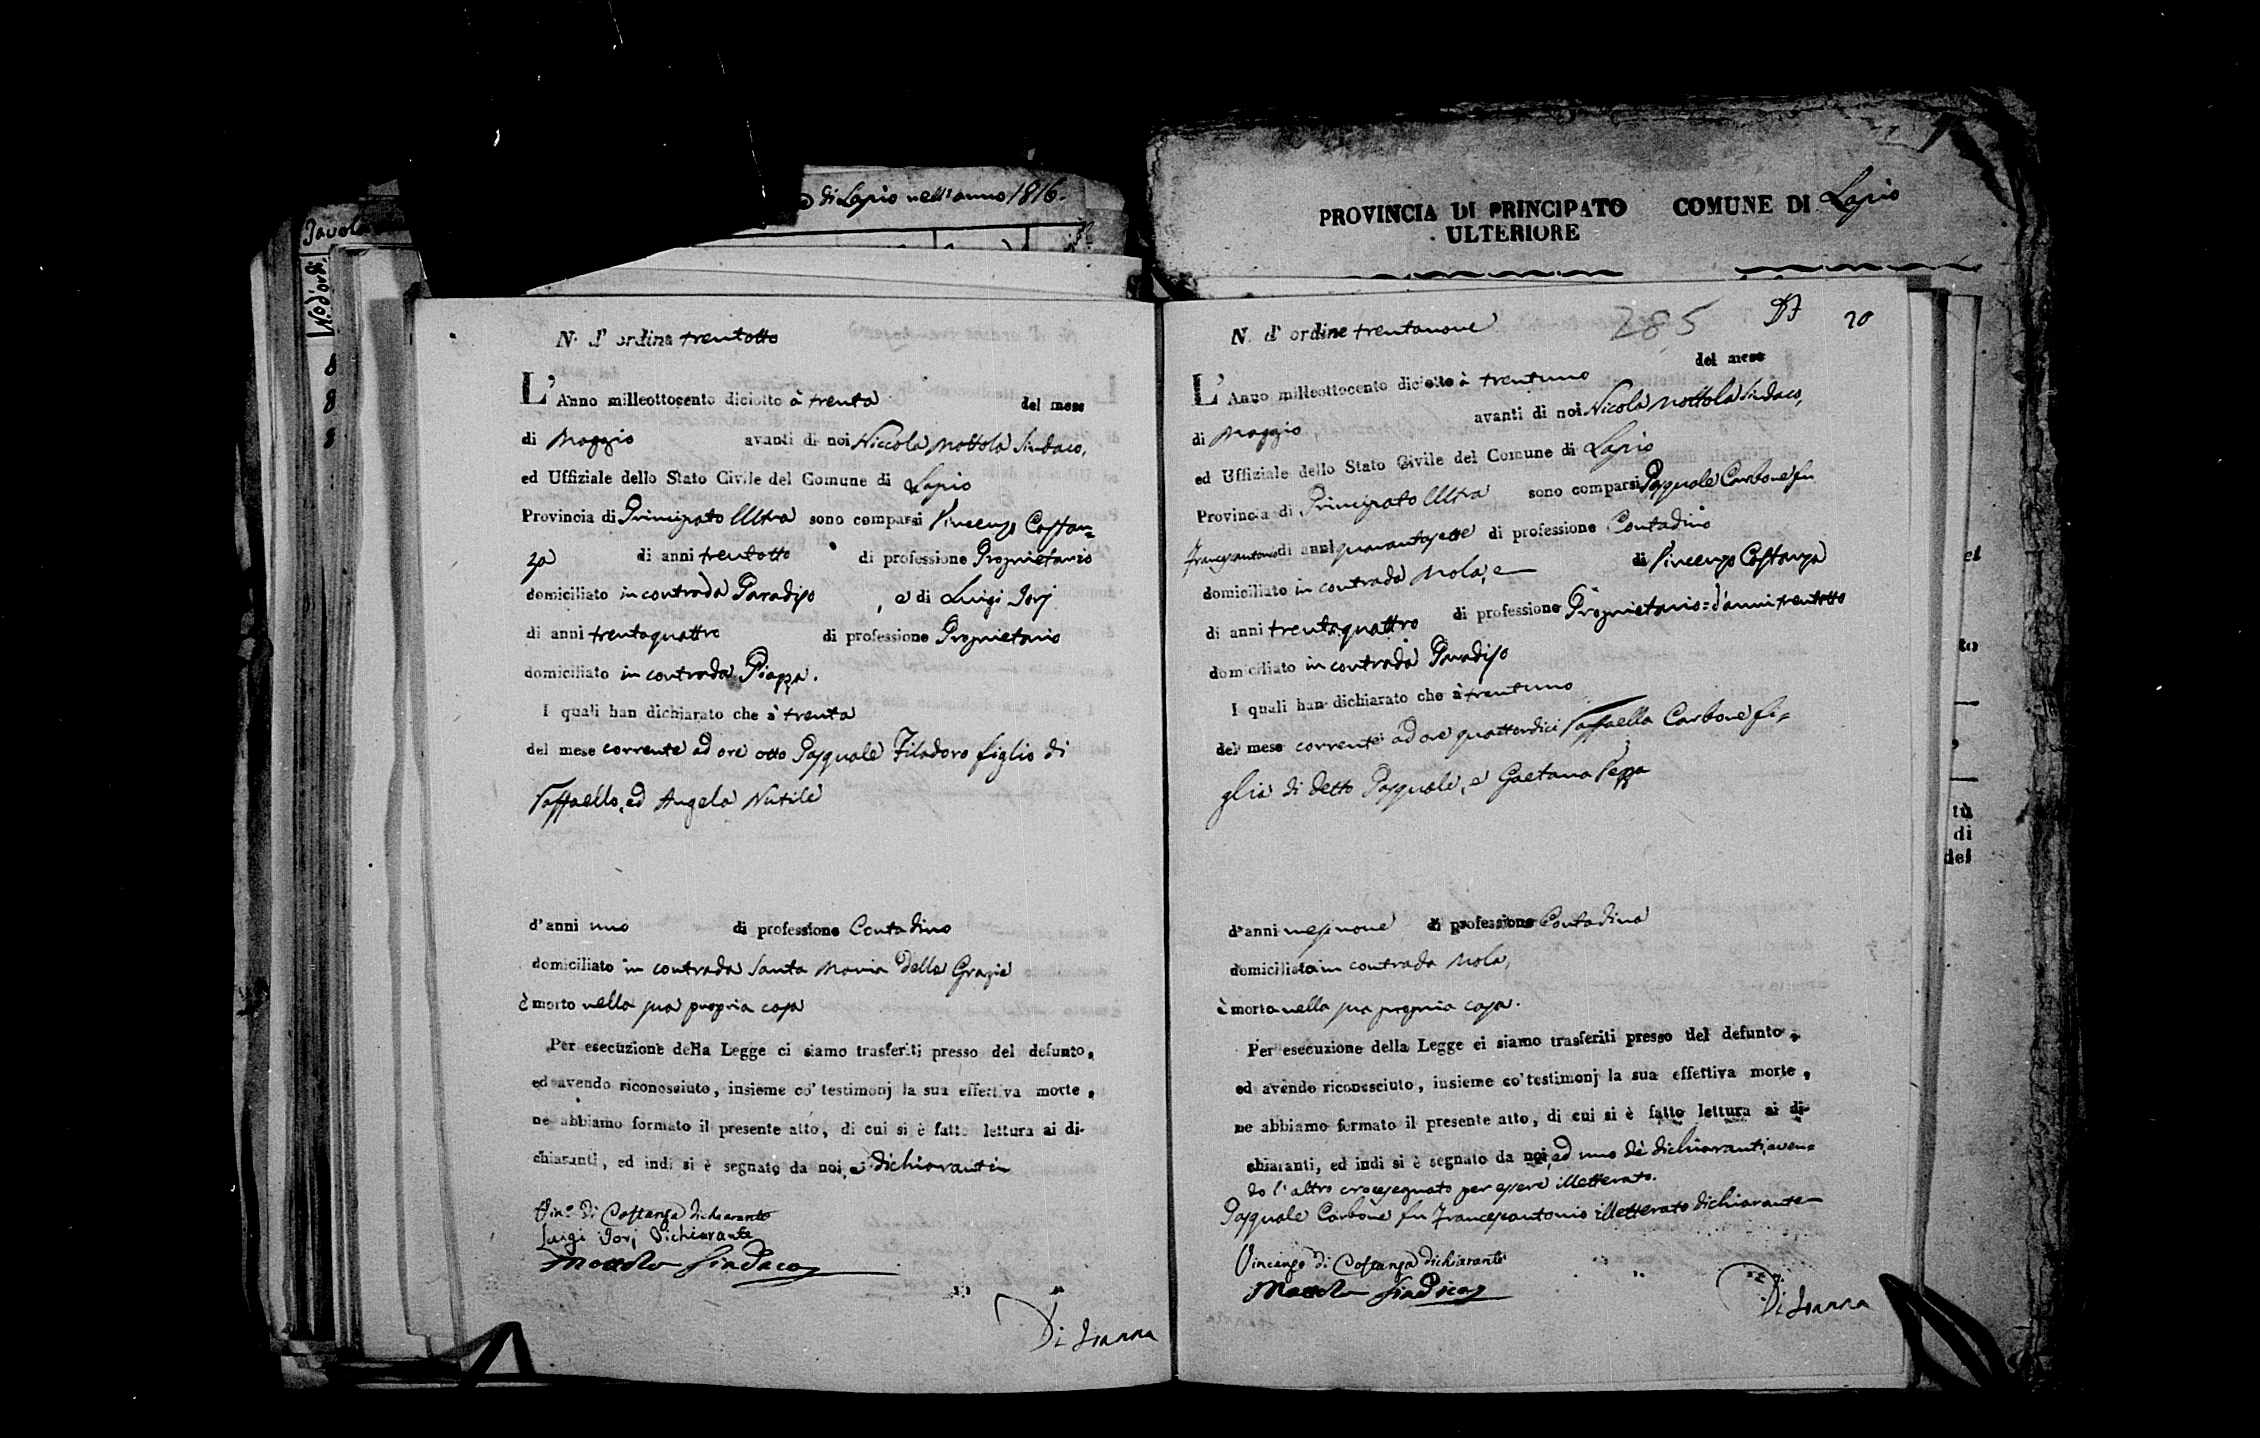 di Lapio nell'anno 1816.
Tavola
N.o d'ordi.
8
8
8
PROVINCIA DI PRINCIPATO COMUNE DI Lapio
ULTERIORE
N. d' ordine trentotto
L'Anno milleottocento diciotto à trenta del mese
di Maggio avanti di noi Niccola Mottola Sindaco,
ed Uffiziale dello Stato Civile del Comune di Lapio
Provincia di Principato Ultra sono comparsi Vincenzo Costan=
za di anni trentotto di professione Proprietario
domiciliato in contrada Paradiso, e di Luigi Iorj
di anni trentaquattro di professione Proprietario
domiciliato in contrada Piazza.
I quali han dichiarato che à trenta
del mese corrente ad ore otto Pasquale Filadoro figlio di
Raffaello, ed Angela Nutile
d'anni uno di professione Contadino
domiciliato in contrada Santa Maria delle Grazie
è morto nella sua propria casa
Per esecuzione della Legge ci siamo trasferiti presso del defunto,
ed avendo riconosciuto, insieme co' testimonj la sua effettiva morte,
ne abbiamo formato il presente atto, di cui si è fatto lettura ai di-
chiaranti, ed indi si è segnato da noi, e dichiaranti
Vin.o di Costanza dichiarante
Luigi Iorj Dichiarante
Mottola Sindaco
Di Ioanna
N. d' ordine trentanove
285
20
L'Anno milleottocento diciotto à trentuno del mese
di Maggio, avanti di noi Nicola Mottola Sindaco,
ed Uffiziale dello Stato Civile del Comune di Lapio
Provincia di Principato Ultra sono comparsi Pasquale Carbone fu
Francesantonio di anni quarantasette di professione Contadino
domiciliato in contrada Mola, e di Vincenzo Costanza
di anni trentaquattro di professione Proprietario = d'anni trentotto
domiciliato in contrada Paradiso
I quali han dichiarato che à trentuno
del mese corrente ad ore quattordici Raffaella Carbone fi=
glia di detto Pasquale, e Gaetana Pezza
d'anni di professione Contadina
domiciliata in contrada Mola,
è morta nella sua propria casa.
Per esecuzione della Legge ci siamo trasferiti presso del defunto,
ed avendo riconosciuto, insieme co' testimonj la sua effettiva morte,
ne abbiamo formato il presente atto, di cui si è fatto lettura ai di-
chiaranti, ed indi si è segnato da noi, ed uno dè dichiaranti, aven=
do l'altro crocesegnato per essere illetterato.
Pasquale Carbone fu Francescantonio illetterato dichiarante
Vincenzo di Costanza dichiarante
Mottola Sindaco
Di Ioanna
el
to
tù
di
del